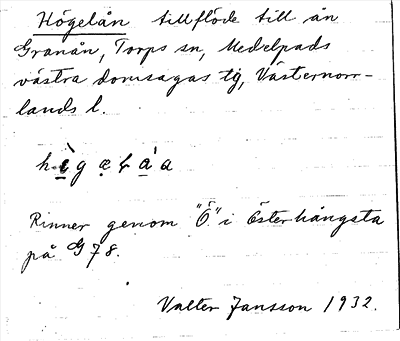 Högelån tillflöde till ån
Granån, Torps sn, Medelpads
västra domsagas tg, Västernorr-
lands l.
Rinner genom "Ö." i Österhångsta
på G 78.
Valter Jansson 1932.